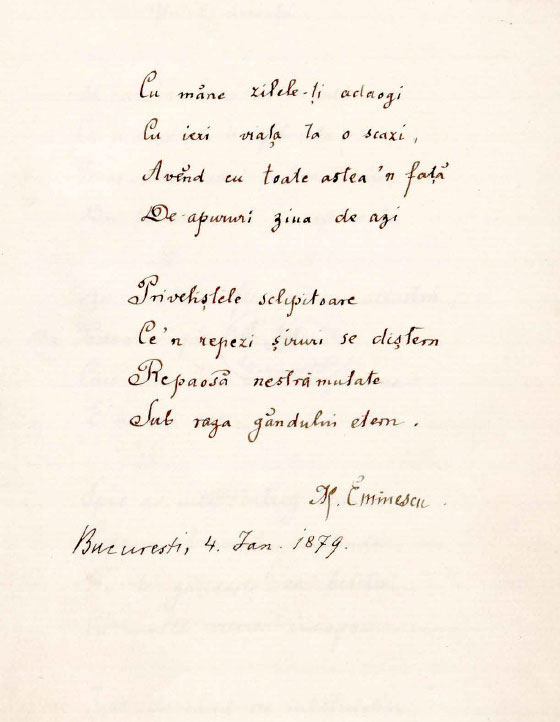 Cu măne zilele-ți adaogi
Cu ieri viața ta o scazi,
Avĕnd cu toate astea 'n față
De-apururi ziua de azi
Priveliștele sclipitoare
Ce 'n repezi șiruri se diștern
Repaosă nestrămutate
Sub raza găndului etern.
M. Eminescu.
Bucuresti, 4. Ian. 1879.